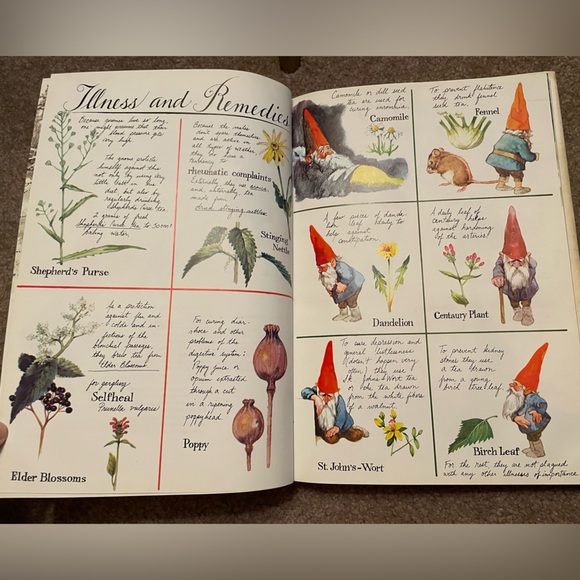 Illness and Remedies
Because gnomes live so long,
one might presume that their
blood pressure gets
very high.
The gnome protects
himself against this
not only by using very
little salt in his
diet, but also by
regularly drinking
Shepherd's Purse tea
2 grains of fresh
Shepherd's Purse tea to 500ml
boiling water.
Shepherd's Purse
Because the males
don't spare themselves
and are active in
all types of weather,
they do have a
tendency to
rheumatic complaints
Externally they use arnica
and internally, tea
made from
dried stinging nettles.
Stinging
Nettle
As a protection
against flu and
colds and in-
fections of the
bronchial passages,
they brew tea from
Elder Blossoms
for gargling
Selfheal
Prunella vulgaris
Elder Blossoms
For curing diar-
rhoea and other
problems of the
digestive system:
Poppy juice or
opium extracted
through a cut
in a ripening
poppyhead.
Poppy
Camomile or dill seed
tea are used for
curing insomnia.
Camomile
To prevent flatulence
they drink fennel
seed tea.
Fennel
A few pieces of dande-
lion leaf daily to
help against
constipation
Dandelion
A daily leaf of
centaury helps
against hardening
of the arteries
Centaury Plant
To cure depression and
general listlessness
(doesn't happen very
often) they use
St. John's-Wort tea
or tea drawn
from the white fibers
of a walnut.
St. John's-Wort
To prevent kidney
stones they use
a tea drawn
from a young
birch tree leaf.
Birch Leaf
For the rest they are not plagued
with any other illnesses of importance